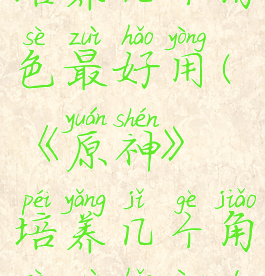 sè zuì hǎo yòng
色最好用(
yuán shén
《原神》
péi yǎng jǐ gè jiǎo
培养几个角